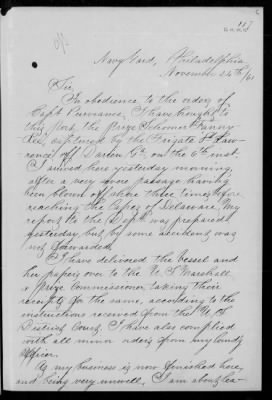 Navy Yard, Philadelphia
November 24th/61
Sir,
In obedience to the orders of
Capt Purviance, I have brought to
this Port the Prize Schooner Fanny
Lee, captured by the Frigate St Law-
rence off Darien Ga. on the 6th inst.
I arrived here yesterday morning
after a very long passage having
been blown off shore three times before
reaching the Capes of Delaware. My
report to the Dept was prepared
yesterday, but by some accident was
not forwarded.
I have delivered the vessel and
her papers over to the U. S. Marshall
& Prize Commissioner, taking their
receipts for the same, according to the
instructions received from the U. S.
District Court. I have also complied
with all minor orders from my Comdg
Officer.
As my business is now finished here,
and being very unwell, I am about lea-